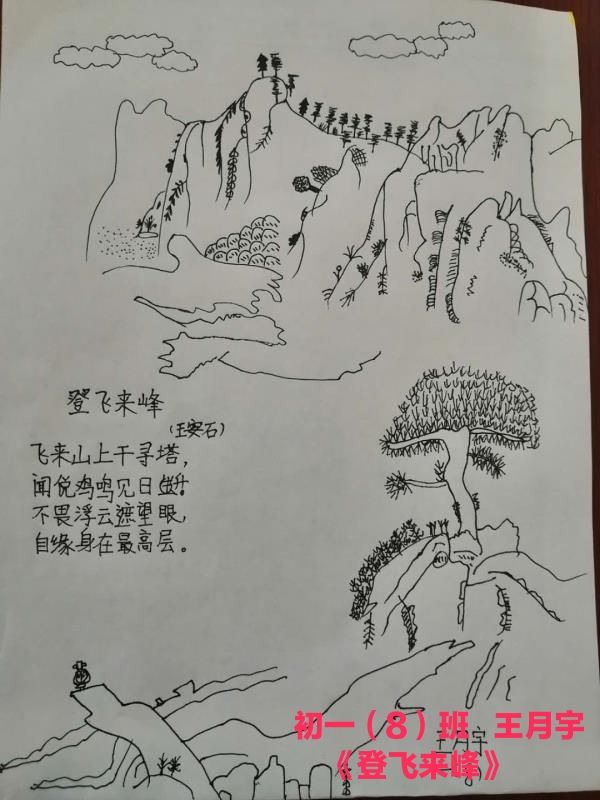 登飞来峰
(王安石)
飞来山上千寻塔,
闻说鸡鸣见日升。
不畏浮云遮望眼,
自缘身在最高层。
王月宇
初一（8）班 王月宇
《登飞来峰》